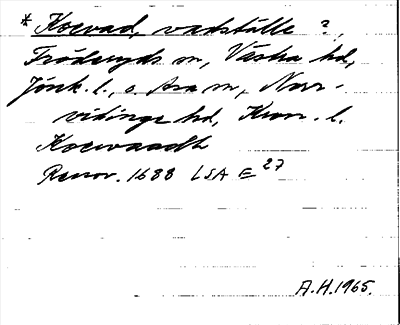 * Koevad, vadställe ?,
Fröderyds sn, Västra hd,
Jönk. l., o. Asa sn, Norr-
vidinge hd, Kron. l.
Koewaadh
Renov. 1688 LSA E 27
A.H. 1965.